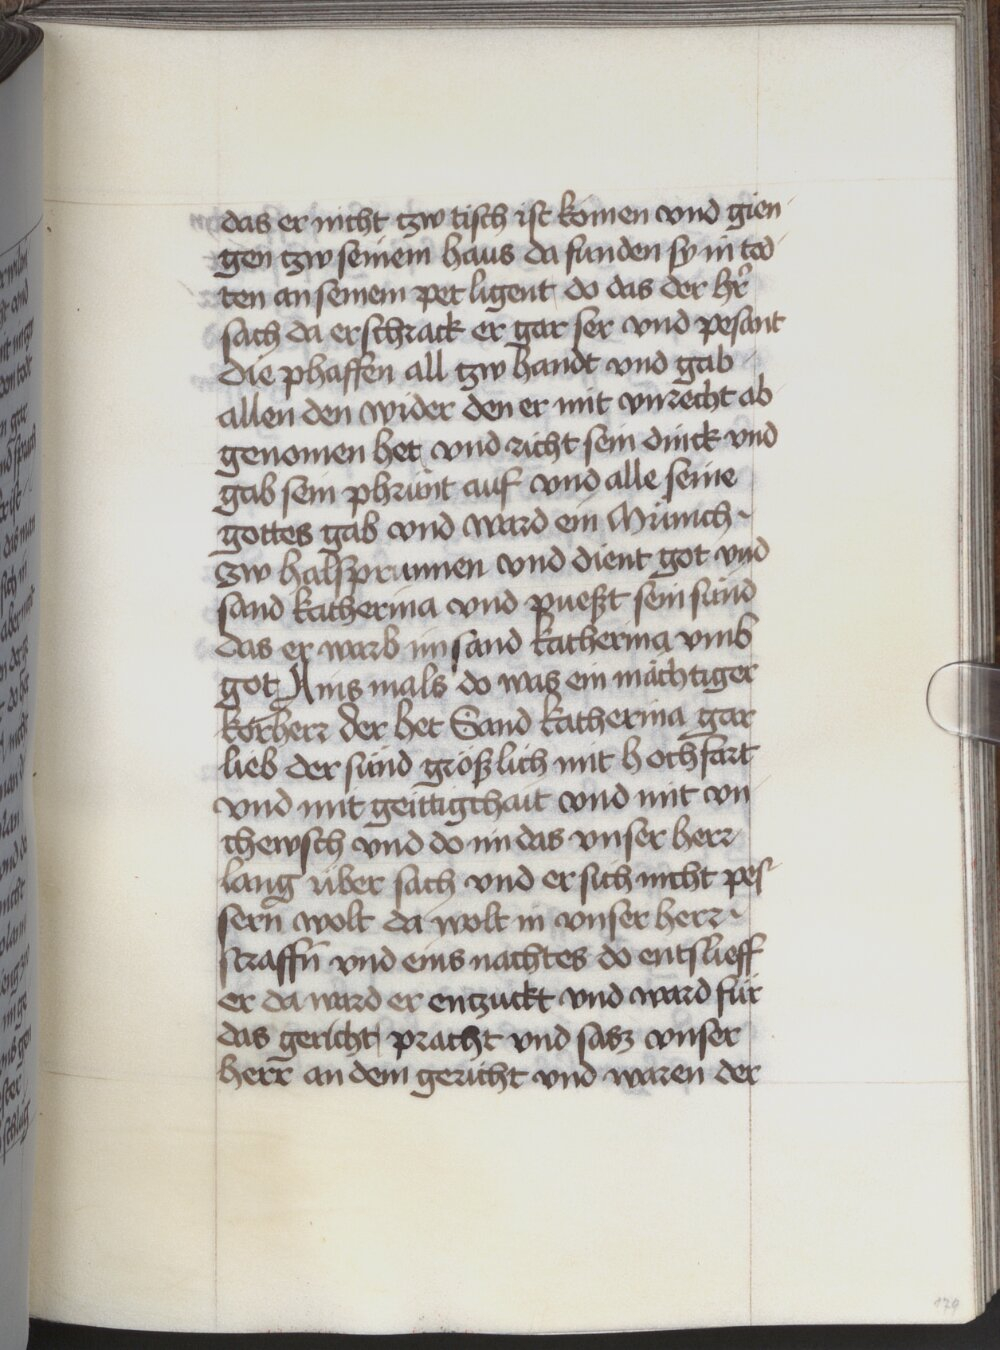 das er nicht tzw tisch ist komen vnd gien
gen tzw seinem haus da funden sy in tod
ten an seinem pet ligent do das der hr̄
sach da erschrack er gar ser vnd pesant
die phaffen all tzw handt vnd gab
allen den wider den er mit vnrecht ab
genomen het vnd richt sein dinck vnd
gab sein phrünt auf vnd alle seine
gottes gab vnd ward ein Münich
zw halsprunnen vnd dient got vnd
sand katherina vnd pueßt sein sünd
das er warb im sand katherina vmb
got Ains mals do was ein mächtiger
korherr der het Sand katherina gar
lieb der sünd größlich mit hochfart
vnd mit geittigchait vnd mit vn
chewsch vnd do im das vnser herr
lang über sach vnd er sich nicht pes
sern wolt da wolt in vnser herr
straffn̄ vnd eins nachtes do entslieff
er da ward er entzuckt vnd ward für
das gericht pracht vnd sasz vnser
herr an dem gericht vnd waren der
179